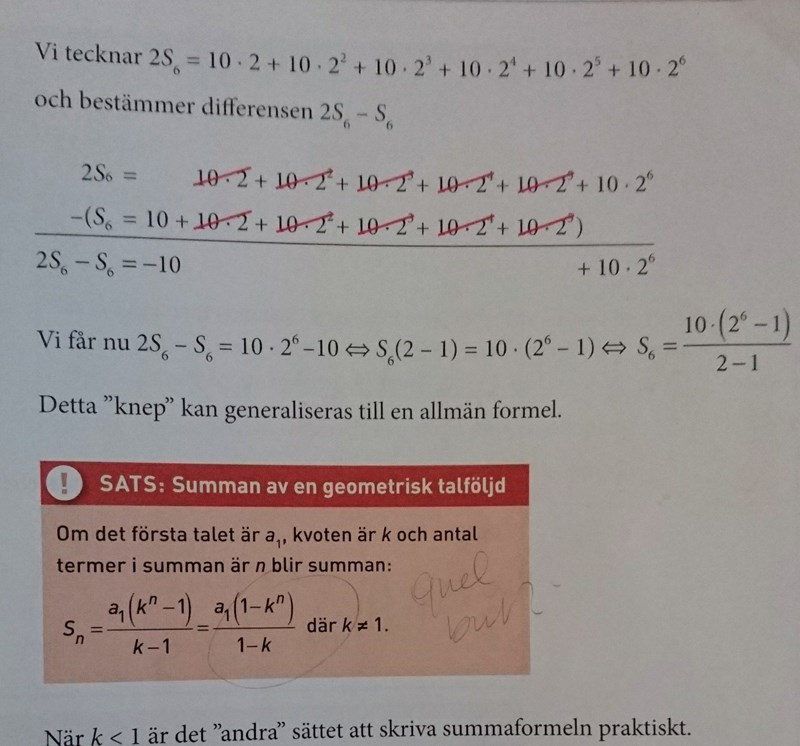 Vi tecknar 2S₆ = 10 · 2 + 10 · 2² + 10 · 2³ + 10 · 2⁴ + 10 · 2⁵ + 10 · 2⁶
och bestämmer differensen 2S₆ – S₆
2S₆ = 10 · 2 + 10 · 2² + 10 · 2³ + 10 · 2⁴ + 10 · 2⁵ + 10 · 2⁶
–(S₆ = 10 + 10 · 2 + 10 · 2² + 10 · 2³ + 10 · 2⁴ + 10 · 2⁵)
2S₆ – S₆ = –10 + 10 · 2⁶
Vi får nu 2S₆ – S₆ = 10 · 2⁶ –10 ⇔ S₆(2 – 1) = 10 · (2⁶ – 1) ⇔ S₆ = 10·(2⁶ – 1) / 2 – 1
Detta ”knep” kan generaliseras till en allmän formel.
! SATS: Summan av en geometrisk talföljd
Om det första talet är a₁, kvoten är k och antal
termer i summan är n blir summan:
Sₙ = a₁(kⁿ – 1) / k – 1 = a₁(1 – kⁿ) / 1 – k där k ≠ 1.
quel
När k < 1 är det ”andra” sättet att skriva summaformeln praktiskt.